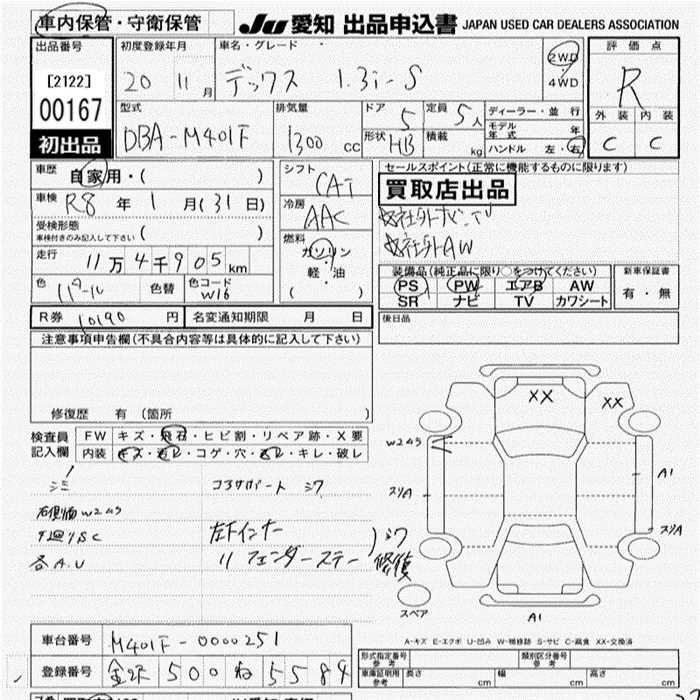 車内保管・守衛保管 JU 愛知 出品申込書 JAPAN USED CAR DEALERS ASSOCIATION
出品番号 初度登録年月 車名・グレード 2WD 4WD 評価点
[2122] 20 11月 デックス 1.3i-S R
00167 型式 排気量 ドア 5 定員 5人 ディーラー・並行 外装 内装
初出品 DBA-M401F 1300 cc 形状 HB 積載 kg モデル年式 年 C C
ハンドル 左・右
車歴 自家用・( ) シフト CAT セールスポイント(正常に機能するものに限ります)
車検 R8年 1月(31日) 冷房 AAC 買取店出品
受検形態 車検付きのみ記入して下さい ( ) 燃料 ガソリン
社外AW
走行 11万4千905km 軽・油
( )
装備品(純正品に限り○をつけてください) 新車保証書
色 色替 色コード W16 PS PW エアB AW 有・無
SR ナビ TV カワシート
R券 10190円 名変通知期限 月 日 後日品
注意事項申告欄(不具合内容等は具体的に記入して下さい)
修復歴 有 (箇所 )
検査員記入欄 FW キズ・飛石・ヒビ割・リペア跡・X要
内装 キズ・汚レ・コゲ・穴・・キレ・破レ
XX XX
W2 A3
A1
スリA
スリA
スペア
A1
コアサポート シワ
右側面 W2 A3
下廻りSC 左下インナー
各A.U 〃 フェンダーステー シワ 修復
A-キズ E-エクボ U-凹み W-補修跡 S-サビ C-腐食 XX-交換済
車台番号 M401F-0000251
型式指定番号 参考 類別区分番号 参考
登録番号 金沢 500 ね 5584
車庫証明用 参考 長さ cm 幅 cm 高さ cm